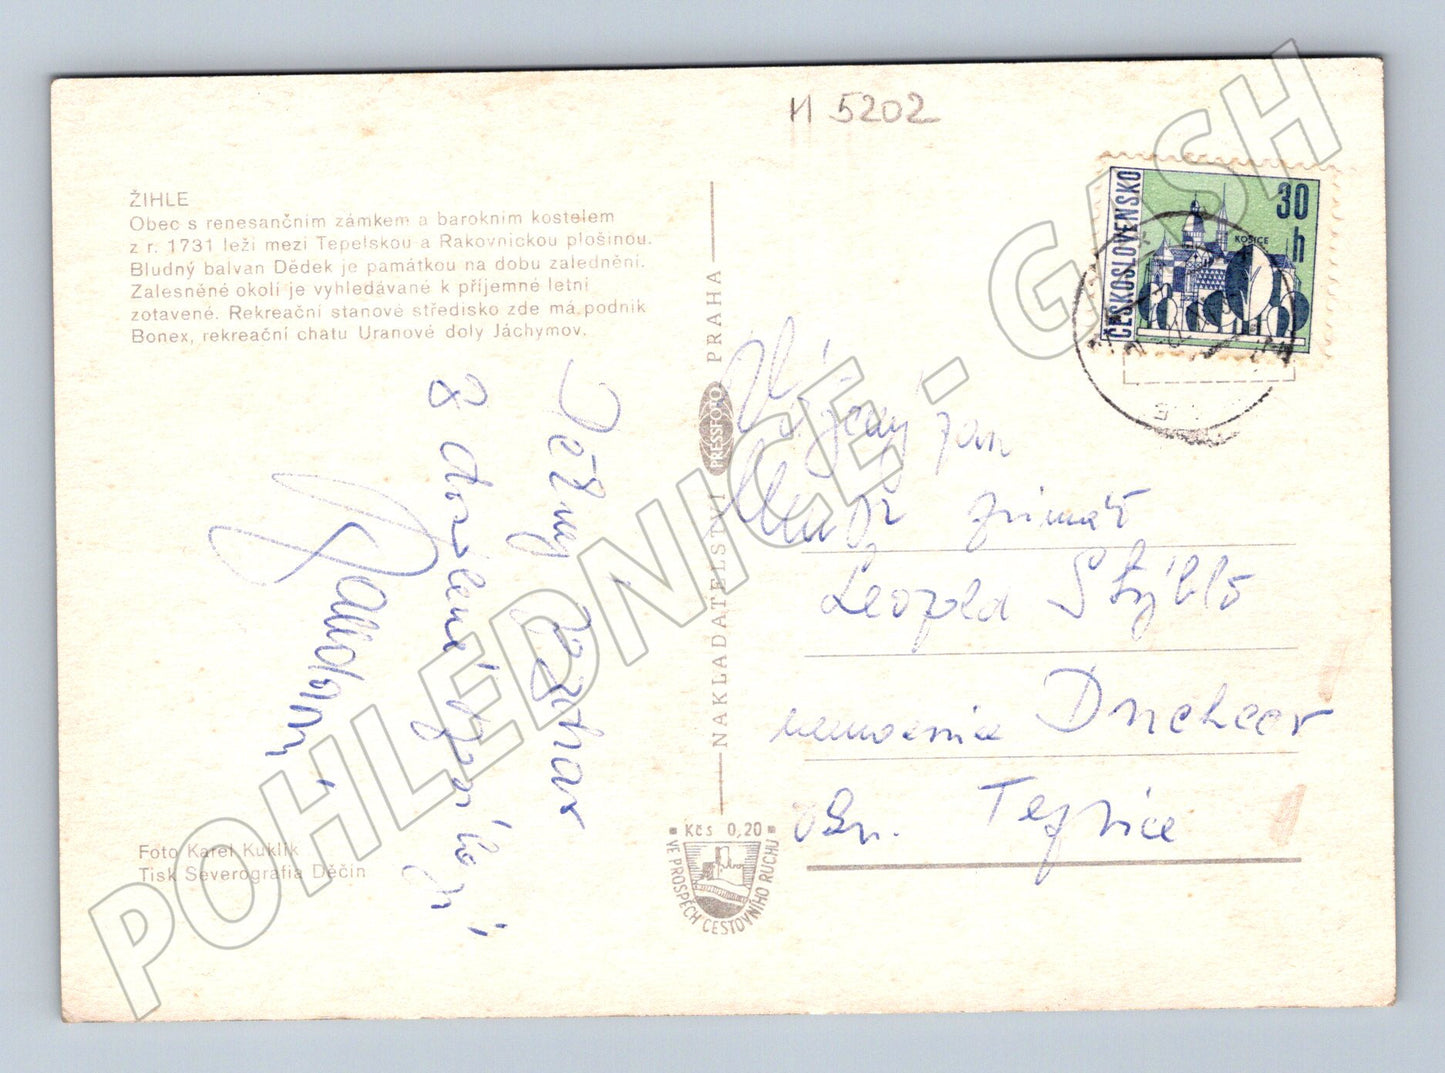 M 5202
ŽIHLE
Obec s renesančním zámkem a barokním kostelem
z r. 1731 leží mezi Tepelskou a Rakovnickou plošinou.
Bludný balvan Dědek je památkou na dobu zalednění.
Zalesněné okolí je vyhledávané k příjemné letní
zotavené. Rekreační stanové středisko zde má podnik
Bonex, rekreační chatu Uranové doly Jáchymov.
z dovolené
Foto Karel Kuklík
Tisk Severografia Děčín
NAKLADATELSTVÍ PRESSFOTO PRAHA
Kčs 0,20
VE PROSPĚCH CESTOVNÍHO RUCHU
ČESKOSLOVENSKO
30 h
KOŠICE
Vážený pan
MUDr primář
Leopold Stýblo
nemocnice Duchcov
Teplice
POHLEDNICE - GASH